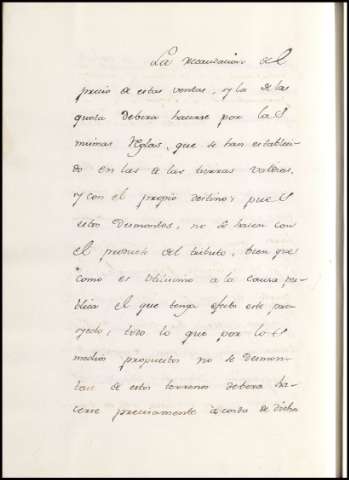 La recaudacion del
precio de estas ventas, y la de las
quotas deberá hacerse por las
mismas reglas, que se han estableci-
do en las de las tierras valdias,
y con el propio destino; pues
estos Desmontes, no se hacen con
el producto del tributo, bien que
como es utilisimo a la causa pu-
blica el que tenga efecto este pro-
yecto; todo lo que por los
medios propuestos no se desmon-
tare de estos terrenos deberá ha-
cerse precisamente à costa de dicho